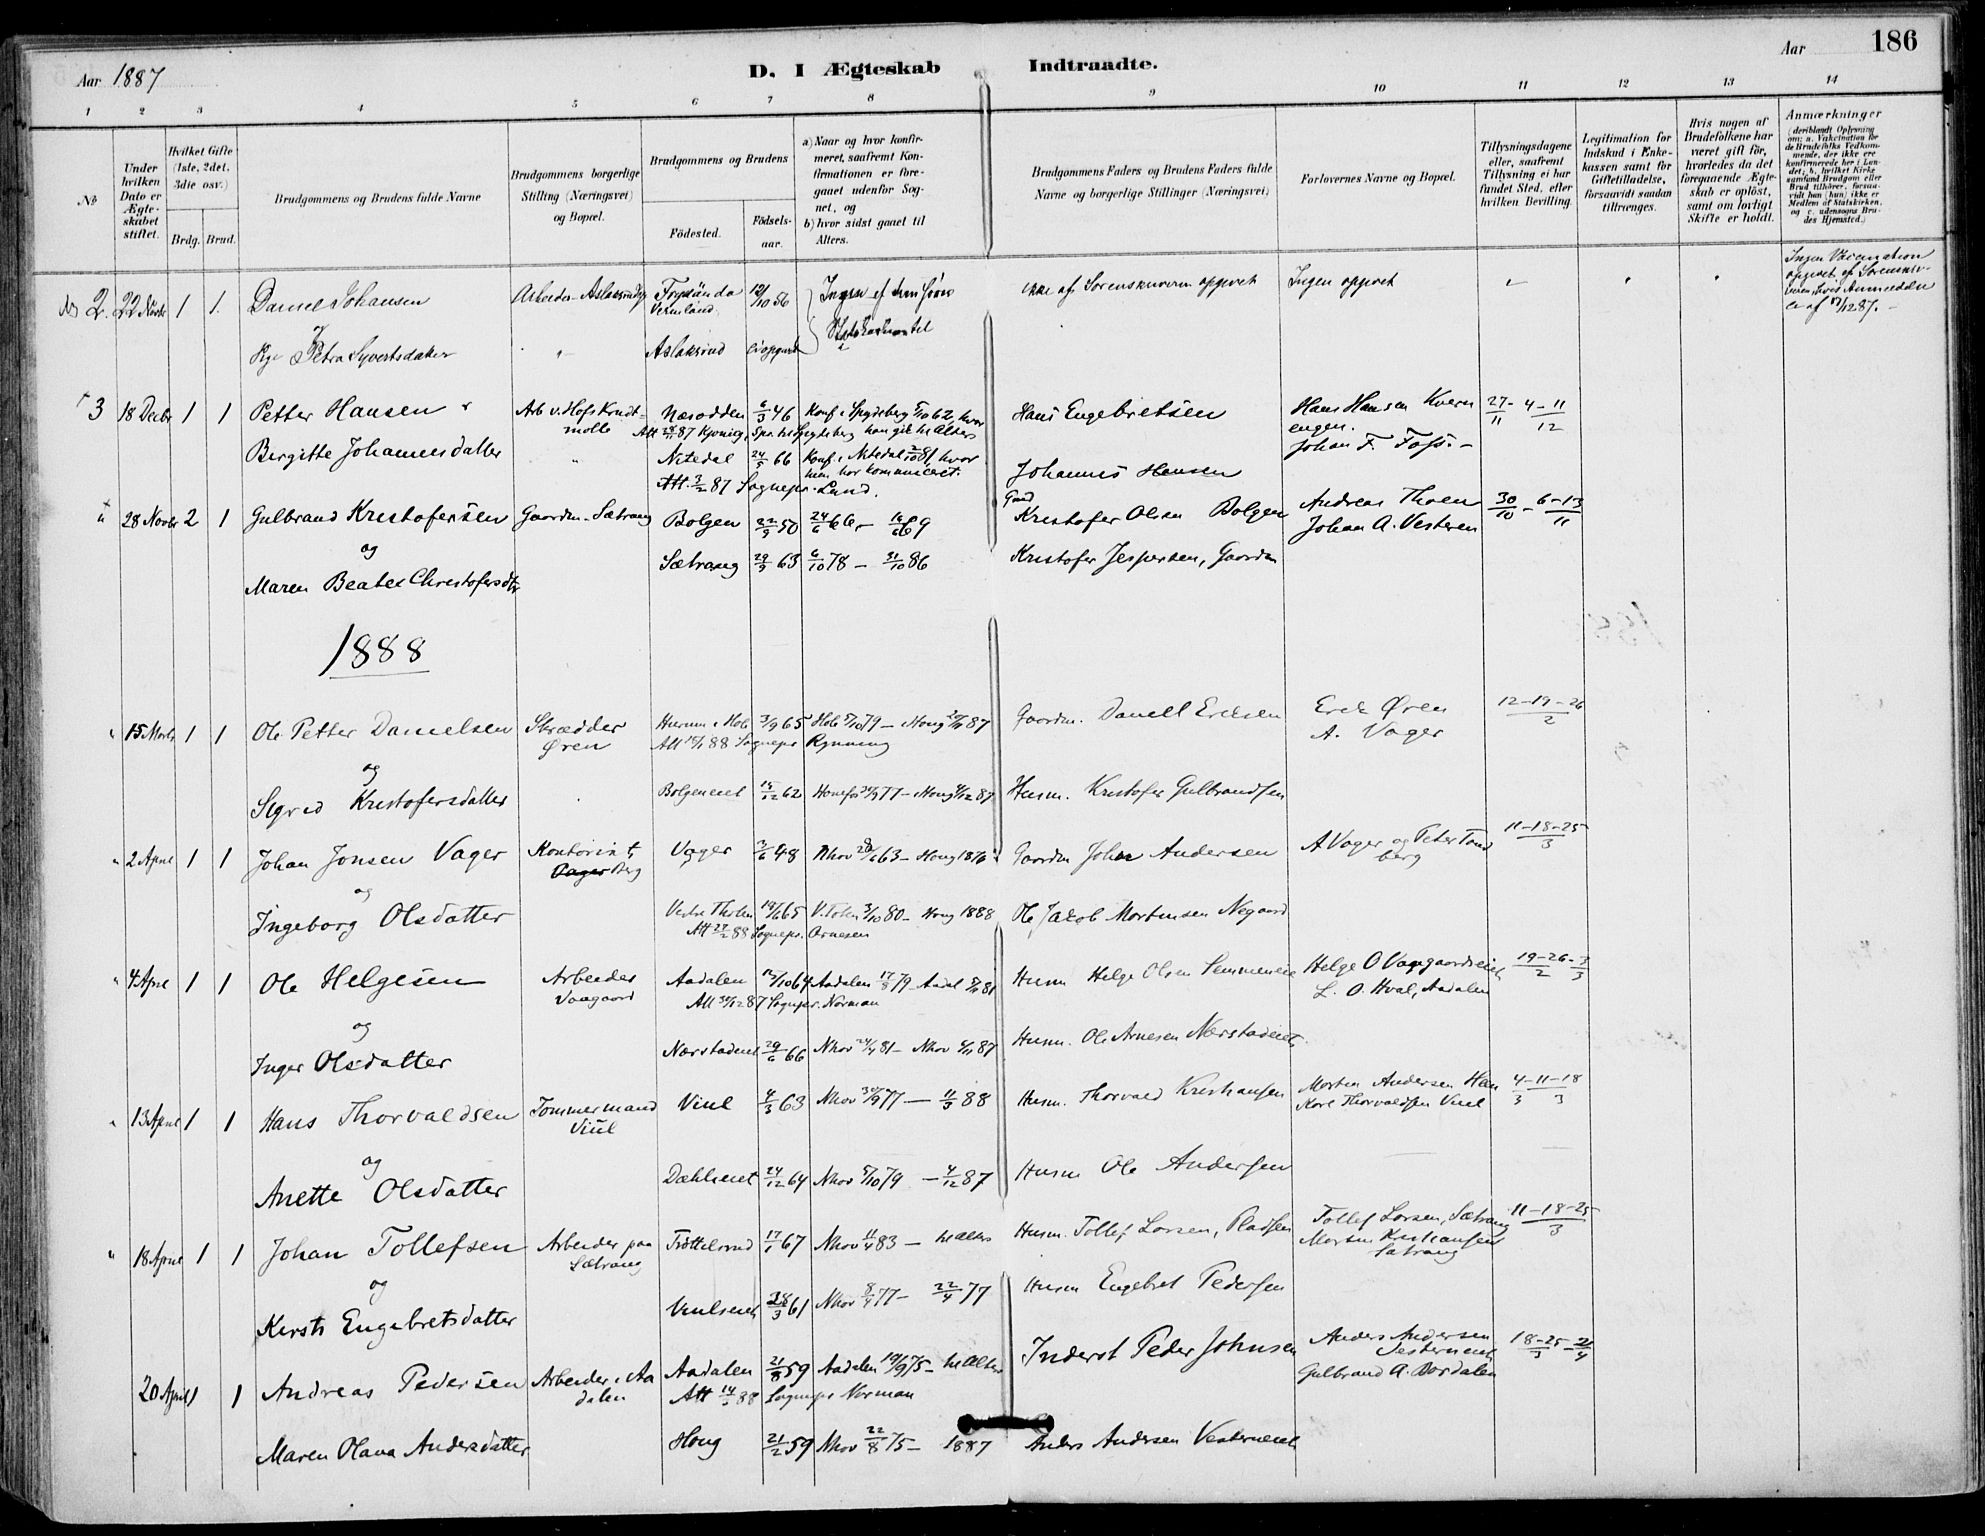 Aar 1887
D. I Ægteskab Indtraadte.
Aar 186
1 2 3 4 5 6 7 8 9 10 11 12 13 14
No
Under hvilken Dato er Ægteskabet stiftet.
Hvilket Gifte (1ste, 2det, 3die osv.)
Brdg. Brud.
Brudgommens og Brudens fulde Navne
Brudgommens borgerlige Stilling (Næringsvei) og Bopæl.
Brudgommens og Brudens
Fødested.
Fødselsaar.
a) Naar og hvor konfirmeret, saafremt Konfirmationen er foregaaet udenfor Sognet, og
b) hvor sidst gaaet til Alters.
Brudgommens Faders og Brudens Faders fulde Navne og borgerlige Stillinger (Næringsvei)
Forlovernes Navne og Bopæl.
Tillysningsdagene eller, saafremt Tillysning ei har fundet Sted, efter hvilken Bevilling.
Legitimation for Indskud i Enkekassen samt for Giftetilladelse, forsaavidt saadan tiltrænges.
Hvis nogen af Brudefolkene har været gift før, hvorledes da det foregaaende Ægteskab er opløst, samt om lovligt Skifte er holdt.
Anmærkninger
(deriblandt Oplysning om: a. Vakcination for de Brudefolks Vedkommende, der ikke ere konfirmerede her i Landet; b. hvilket Kirkesamfund Brudgom eller Brud tilhører, forsaavidt han (hun) ikke er Medlem af Statskirken, og c. udensogns Brudes Hjemsted.)
2. 22 Novbr 1 1. Daniel Johansen Arbeider Aslaksrud 12/10 56 Ikke af Sorenskriveren opgivet Ingen opgivet
Vermland
og
Petra Syvertsdatter Aslaksrud ei opgivet
3 18 Decbr 1 1 Petter Hansen Arb v. Hofs Krudtmølle Næsodden 6/3 46 Konf. i Spydeberg 5/10 62, hvor Hans Engebretsen Hans Hansen Kværnengen. 27/11 - 4 - 11/12
Johan F. Foss.
Birgitte Johannesdatter Nitedal 24/5 66 Konf. i Nitedal 2/10 81 hvor Johannes Hansen
Att. 3/2 87 Sognepr. Lund.
28 Novbr 2 1 Gulbrand Kristofersen Gaardm. Sætrang Bolgen 22/9 50 24/6 66 - 16/6 69 Gmd Kristofer Olsen Bolgen Andreas Thoen 30/10 - 6 - 13/11
Johan A. Vesteren
og
Maren Beate Christofersdtr Sætrang 29/3 63 6/10 78 - 31/10 86 Kristofer Jespersen, Gaardm
1888
15 Marts 1 1 Ole Petter Danielsen Skrædder Øren 3/9 65 Hole 5/10 79 - Houg 87 Gaardm. Daniel Eriksen Erik Øren 12-19-26/2
A. Vager
Att 88 Sognepr Rynning
og
Sigrid Kristofersdatter Bolgeneiet 15/12 62 Hønefos 77 - Houg 87 Husm. Kristofer Gulbrandsen
2 April 1 1 Johan Jonsen Vager Kontorist, Berg Vager 2/6 48 Nhov 63 - Houg Gaardm John Andersen A Vager og Peter Tandberg 11-18-25/3
og
Ingeborg Olsdatter Vestre Thoten 65 V. Toten 3/10 80 - Houg 1888 Ole Jakob Mortensen Negaard
Att 27/2 88 Sognepr. Arnesen
4 April 1 1 Ole Helgesen Arbeider Vaagaard Aadalen 15/10 64 Aadalen 17/8 79 - Aadal 81 Husm Helge Olsen Semmeneie Helge O Vaagaardseiet 19-26/2 - 3/3
L. O. Hval, Aadalen
Att 30/12 87 Sognepr. Norman
og
Inger Olsdatter Nærstadeiet 29/6 66 Nhov 81 - Nhov 87 Husm. Ole Arnesen Nærstadeiet
13 April 1 1 Hans Thorvaldsen Tømmermand Viul Viul 4/3 63 Nhov 30/9 77 - 11/3 88 Husm. Thorvald Kristiansen Morten Andersen 4/3 - 11 - 18/3
Karl Thorvaldsen Viul
og
Anette Olsdatter Dæhlieiet 24/12 64 Nhov 5/10 79 - 4/12 87 Husm Ole Andersen
18 April 1 1 Johan Tollefsen Arbeider paa Sætrang Trøttelsrud 17/1 67 Nhov 11/4 83 - til Alters Husm. Tollef Larsen, Pladsen Tollef Larsen, Sætrang 11-18-25/3
Morten Kristiansen Sætrang
og
Kersti Engebretsdatter Viulseiet 28/3 61 Nhov 8/4 77 - 22/4 77 Husm Engebret Pedersen
20 April 1 1 Andreas Pedersen Arbeider i Aadalen Aadalen 21/8 59 Aadalen 19/9 75 - til Alters Inderst Peder Johnsen Anders Andersen Vesterneiet 18-25/3 - 2/4
Gulbrand A. Bordalen
Att 14/3 88 Sognepr Norman
Maren Olava Andersdatter Houg 21/2 59 Nhov 22/8 75 - 1887 Anders Andersen Vesterneiet